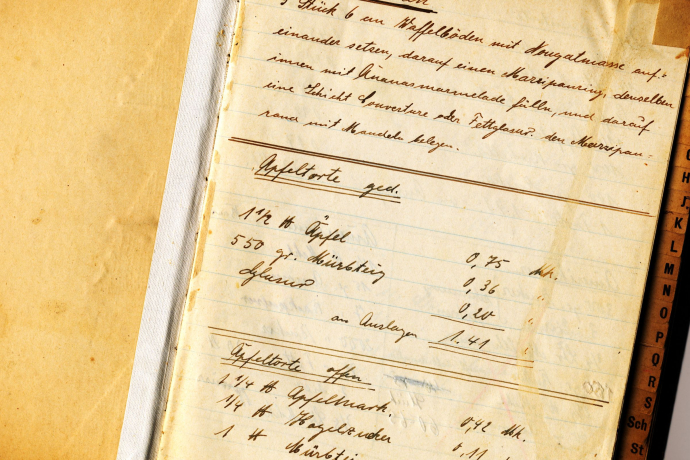 5 Stück 6 cm Waffelböden mit Nougatmasse auf-
einander setzen, darauf einen Marzipanring, denselben
innen mit Ananasmarmelade fülln, und darauf
eine Schicht Couverture oder Fettglasur den Marzipan-
rand mit Mandeln belegen.
Apfeltorte ged.
1 1/2 ℔ Äpfel 0,75 Mk.
550 gr. Mürbteig 0,36 "
Glasur 0,20 "
an Auslagen 1.41 "
Apfeltorte offen
1 1/4 ℔ Apfelmark. 0,42 Mk.
1/4 ℔ Hagelzucker 0,11 "
1 ℔ Mürbteig
H
J
K
L
M
N
O
P
Q
R
S
Sch
St